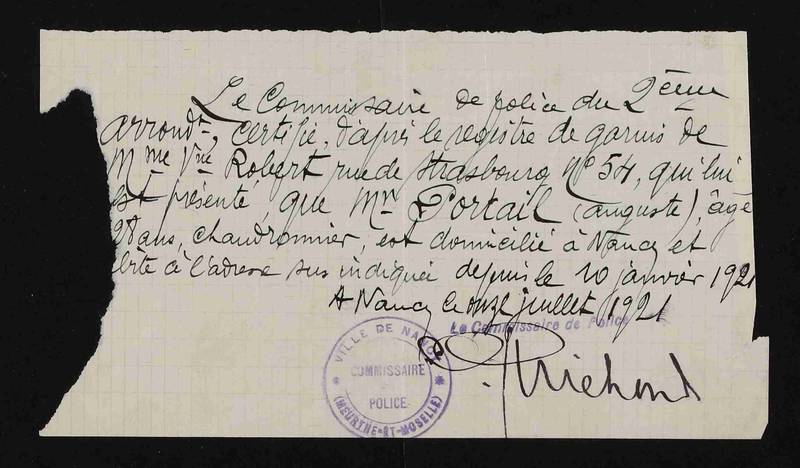 Le Commissaire de police du 2ème
arrondt, certifie, d'après le registre de garnis de
Mme Vve Robert rue de Strasbourg No 54, qui lui
est présenté, que Mr Portail (auguste), âgé
28 ans, chaudronnier, est domicilié à Nancy et
bite à l'adresse sus indiquée depuis le 10 janvier 1921
A Nancy le onze juillet 1921
Le Commissaire de Police
VILLE DE NANCY
COMMISSAIRE
POLICE
(MEURTHE-ET-MOSELLE)